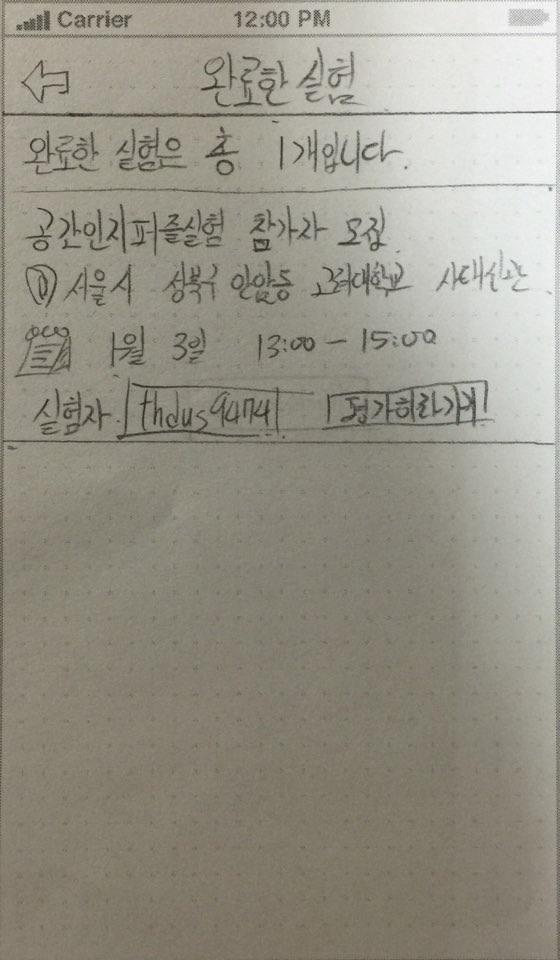 Carrier 12:00 PM
완료한 실험
완료한 실험은 총 1개입니다.
공간인지퍼즐실험 참가자 모집
서울시 성북구 안암동 고려대학교 사대신관
1월 3일 13:00 - 15:00
실험자 thdus9474 평가하러가기